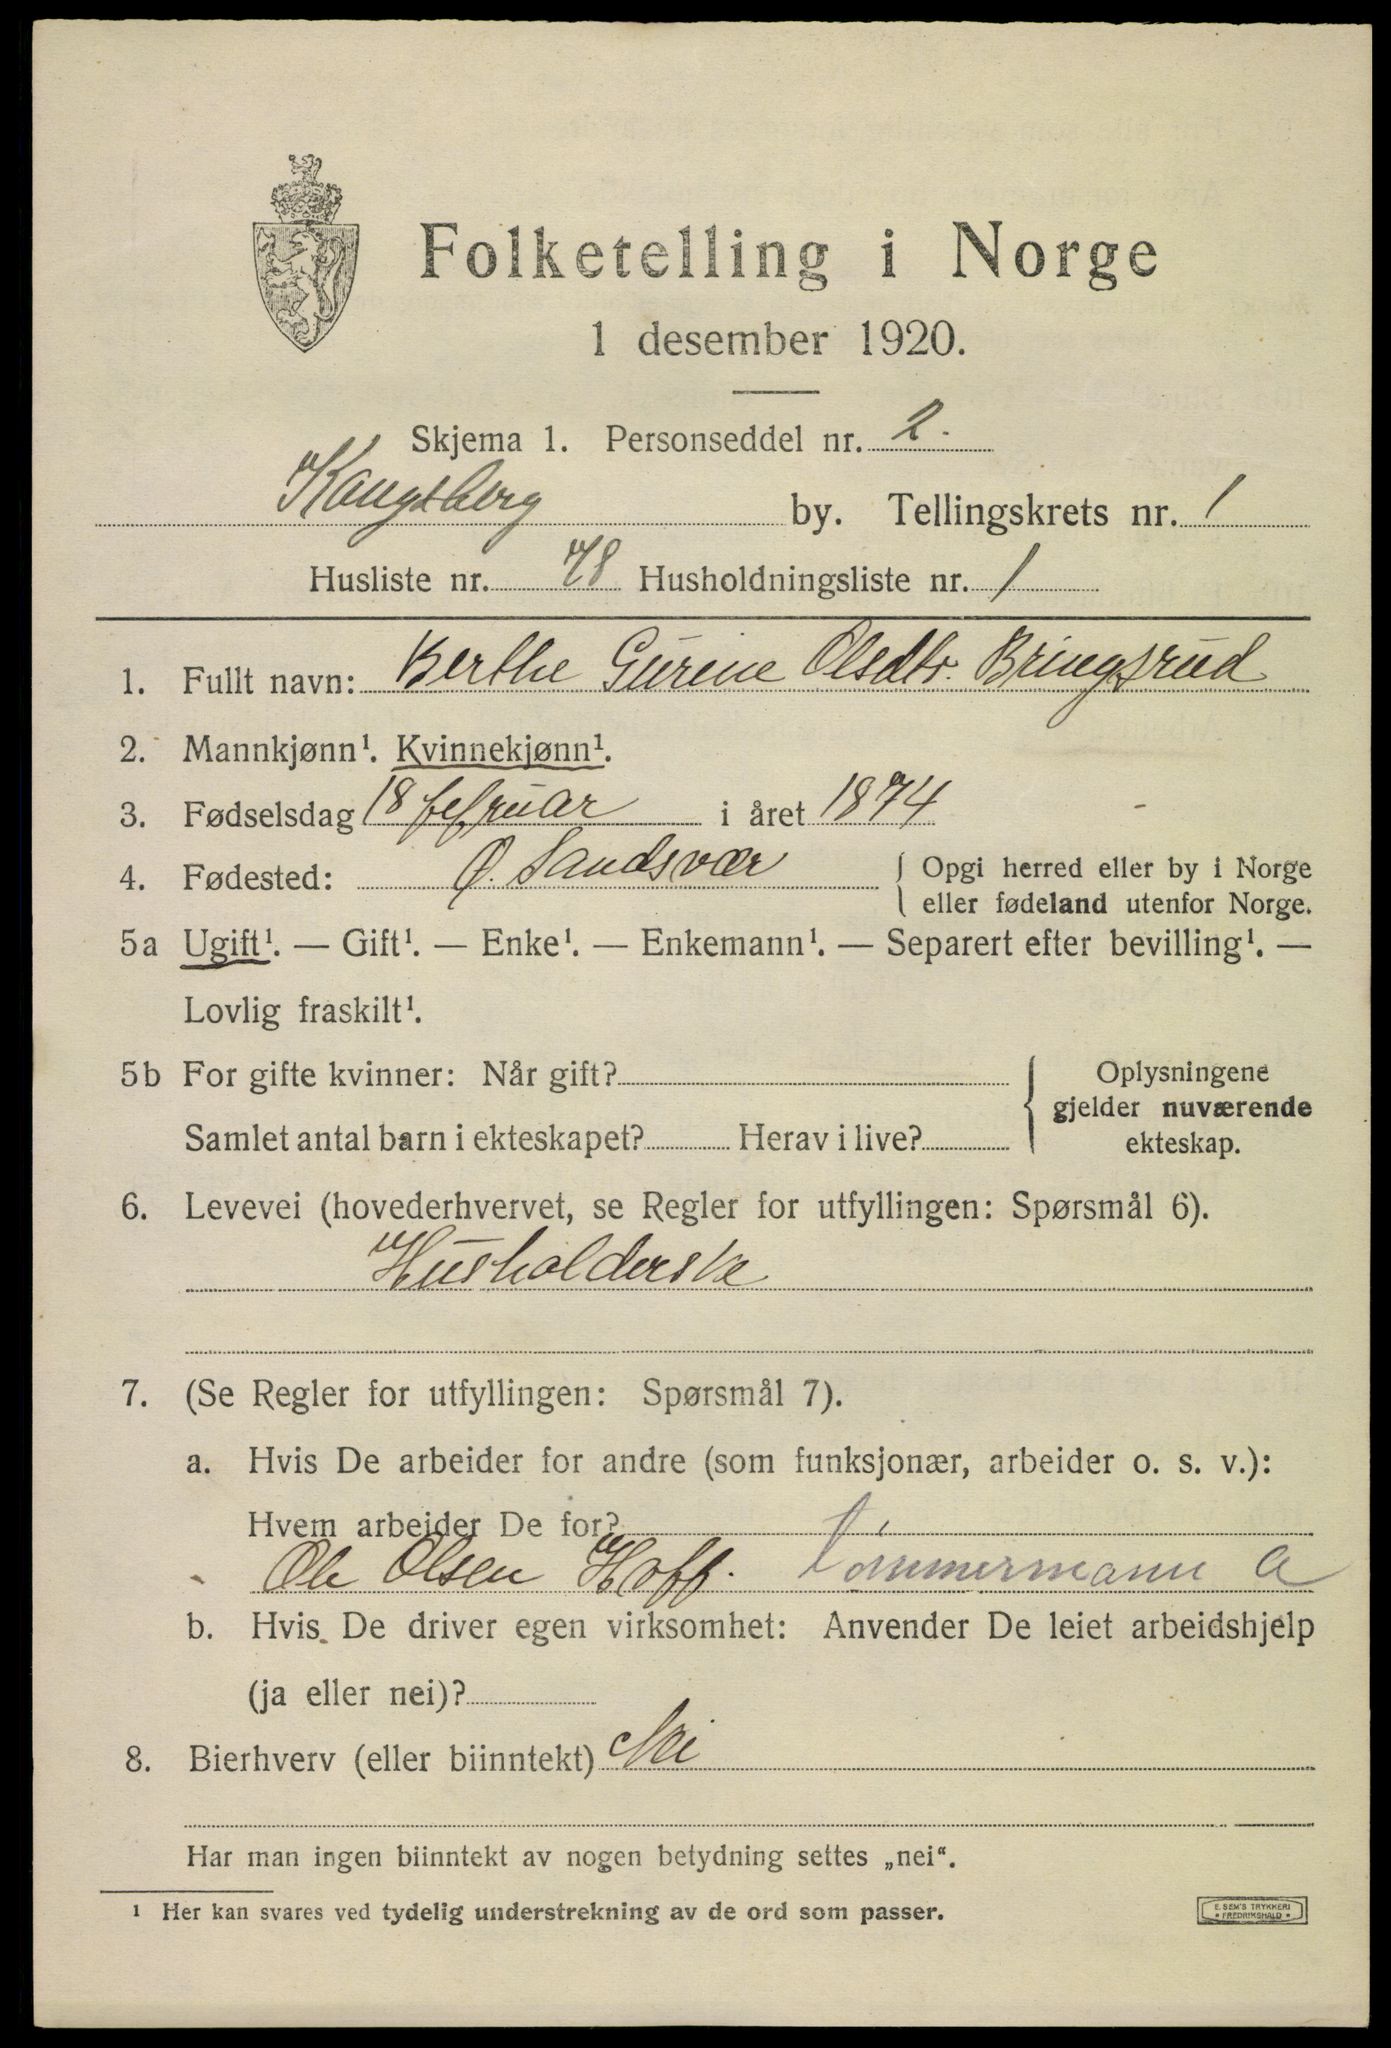 Folketelling i Norge
1 desember 1920.
Skjema 1. Personseddel nr. 2.
Kongsberg by. Tellingskrets nr. 1
Husliste nr. 78 Husholdningsliste nr. 1
1. Fullt navn: Berthe Gurine Olsdtr. Bringsrud
2. Mannkjønn¹. Kvinnekjønn¹.
3. Fødselsdag 18 februar i året 1874
4. Fødested: Ø. Sandsvær { Opgi herred eller by i Norge
eller fødeland utenfor Norge.
5a Ugift¹. — Gift¹. — Enke¹. — Enkemann¹. — Separert efter bevilling¹. —
Lovlig fraskilt¹.
5b For gifte kvinner: Når gift? { Oplysningene
gjelder nuværende
Samlet antal barn i ekteskapet? Herav i live? ekteskap.
6. Levevei (hovederhvervet, se Regler for utfyllingen: Spørsmål 6).
Husholderske
7. (Se Regler for utfyllingen: Spørsmål 7).
a. Hvis De arbeider for andre (som funksjonær, arbeider o. s. v.):
Hvem arbeider De for?
Ole Olsen Hoff. tømmermann a
b. Hvis De driver egen virksomhet: Anvender De leiet arbeidshjelp
(ja eller nei)?
8. Bierhverv (eller biinntekt) Nei
Har man ingen biinntekt av nogen betydning settes „nei“.
¹ Her kan svares ved tydelig understrekning av de ord som passer.
E. SEM'S TRYKKERI
* FREDRIKSHALD *